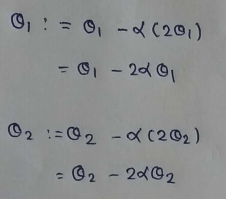 θ₁ := θ₁ - α(2θ₁)
= θ₁ - 2αθ₁
θ₂ := θ₂ - α(2θ₂)
= θ₂ - 2αθ₂